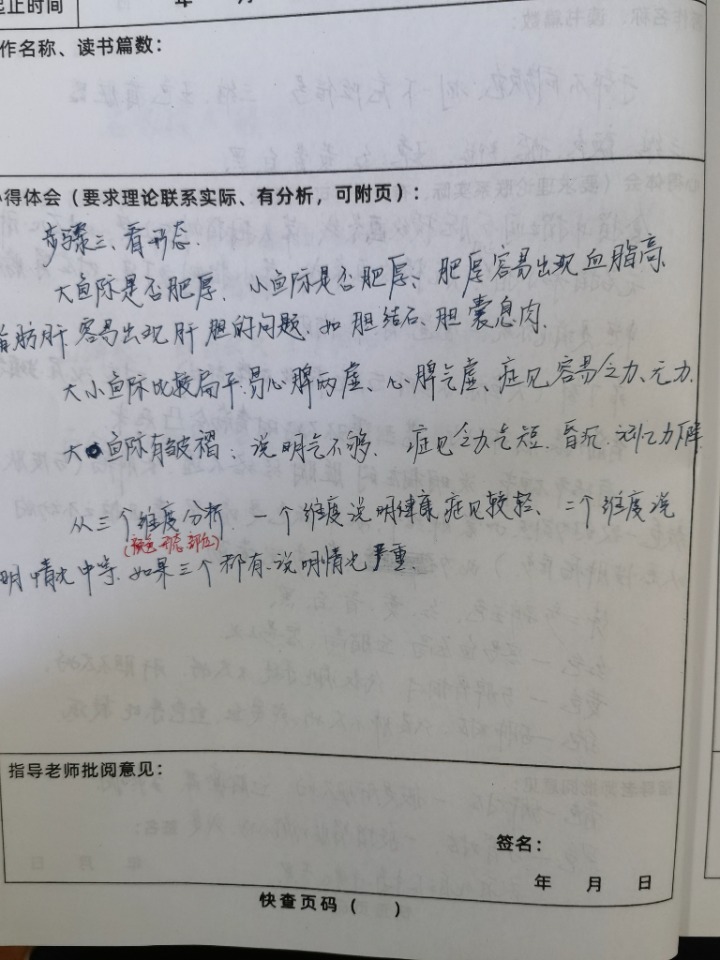 起止时间 年 月
作名称、读书篇数：
心得体会（要求理论联系实际、有分析，可附页）：
步骤三、看形态.
大鱼际是否肥厚、小鱼际是否肥厚、肥厚容易出现血脂高、
脂肪肝容易出现肝胆的问题、如胆结石、胆囊息肉.
大小鱼际比较扁平：易心脾两虚、心脾气虚、症见容易乏力、无力.
大鱼际有皱褶：说明气不够. 症见乏力气短、音沉、记忆力降
从三个维度分析. 一个维度说明健康症见较轻、二个维度说
(颜色 形态 部位)
明情况中等. 如果三个都有、说明情况严重.
指导老师批阅意见：
签名：
年 月 日
快查页码（ ）